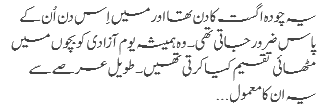 یہ چودہ اگست کا دن تھا اور میں اِس دن اُن کے
پاس ضرور جاتی تھی۔ وہ ہمیشہ یومِ آزادی کو بچوں میں
مٹھائی تقسیم کیا کرتی تھیں۔ طویل عرصے سے
یہ ان کا معمول...